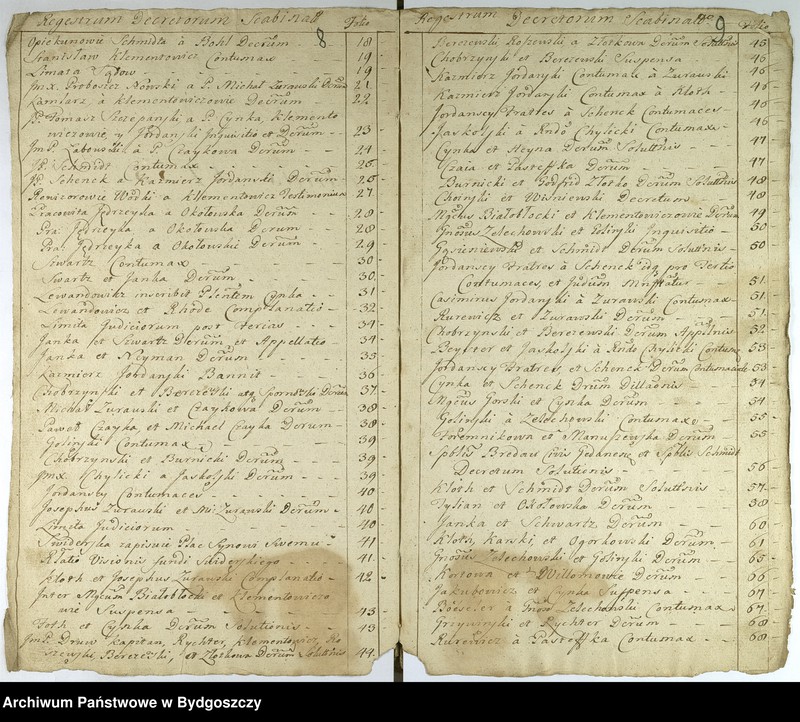 Regestrum Decretorum Scabinal Folio
8
Opiekunowie Schmidta à Bohl Decrum 18
Stanisław Klementowicz Contumax 19
Limata Sądow 19
Jmx. Proboszcz Rowski a P. Michał Zurawski Decrum 21
Lamiarz à Klementowiczowie Decrum 22
P. Tomasz Szczepanski a P. Cynka, Klemento
wiczowie, y Jordanski Inquisitio et Decrum 23
JmP. Łabowski à P. Czaykowa Decrum 24
JP. Schmidt Contumax 25
JP. Schenck a Kazmierz Jordanski Decrum 26
Rewizorowie Wodki a Klementowicz Testimonium 27
Pracowita Jędrzeyka a Okołowska Decrum 28
Pra: Jędrzeyka a Okołowska Decrum 28
Pra: Jędrzeyka a Okołowski Decrum 29
Szwartz Contumax 30
Swartz et Janka Decrum 30
Lewandowicz inscribit Pientem Cynka 31
Lewandowicz et Rhode Complanatio 32
Limita Judiciorum post ferias 34
Janka et Szwartz Decrum et Appellatio 34
Janka et Neyman Decrum 35
Kazmierz Jordanski Bannit 36
Chobrzynski et Berezewski atq Spornicki Decrum 37
Michał Zurawski et Czaykowa Decrum 38
Paweł Czayka et Michael Czayka Decrum 38
Golinski Contumax 39
Chobrzynski et Burnicki Decrum 39
Jmx. Chylicki a Jaskolski Decrum 39
Jordanscy Contumaces 40
Josephus Zurawski et Mi: Zurawski Decrum 40
Limita Judiciorum 40
Swiderska zapisuie Plac Synowi Swemu 41
Rlatio Visionis fundi Swiderskiego 41
Kloth et Josephus Zurawski Complanatio 42
Inter Mgcum Białobłocki et Klementowiczo
wie Suspensa 43
Foth et Cynka Decrum Solutionis 43
JmP. Druw Kapitan, Rychter, Klementowicz, Ro
szewski, Berezewski, et Złotkowa Decrum Soluttnis 44
Regestrum Decretorum Scabinale Folio
9
Berezewski Roszewski a Złotkowa Decrum Soluttnis 45
Chobrzynski et Berezewski Suspensa 46
Kazmierz Jordanski Contumax à Zurawski 46
Kazmierz Jordanski Contumax à Kloth 46
Jordanscy Fratres à Schenck Contumaces 46
Jaskolski à Rndo Chylicki Contumax 46
Cynka et Heyna Decrum Soluttnis 47
Czaia et Pasteffka Decrum 47
Burnicki et Godfrid Złotko Decrum Soluttnis 48
Choinski et Wisniewski Decretum 48
Mgcus Białobłocki et Klementowiczowie Decrum 49
Gnosus Zelechowski et Golinski Inquisitio 50
Gąsieniewski et Schmidt Decrum Soluttnis 50
Jordanscy Fratres à Schenck itq pro Tertio
Contumaces, et Judum Mnffatur 51
Casimirus Jordanski à Zurawski Contumax 51
Kurewicz et Zurawski Decrum 51
Chobrzynski et Berezewski Decrum Appltnis 52
Beyster et Jaskolski à Rndo Chylicki Contumax 53
Jordanscy Fratres et Schenck Decrum Contumaciale 53
Cynka et Schenck Drum Dillaonis 54
Mgcus Gorski et Cynka Decrum 54
Golinski à Zelechowski Contumax 55
Foremnikowa et Manuszewska Decrum 55
Spblis Bredau Civis Gedanens et Spblis Schmidt
Decretum Solutionis 56
Kloth et Schmidt Decrum Soluttnis 57
Tylian et Okołowska Decrum 58
Janka et Schwartz Decrum 60
Kloth, Karski et Ogorkowski Decrum 61
Gnosus Zelechowski et Golinski Decrum 65
Kortowa et Willomowie Decrum 66
Jakubowicz et Cynka Suspensa 67
Böeseler à Gnoso Zelechowski Contumax 67
Grzywinski et Rychter Decrum 68
Kurewicz à Pasteffka Contumax 68
Archiwum Państwowe w Bydgoszczy